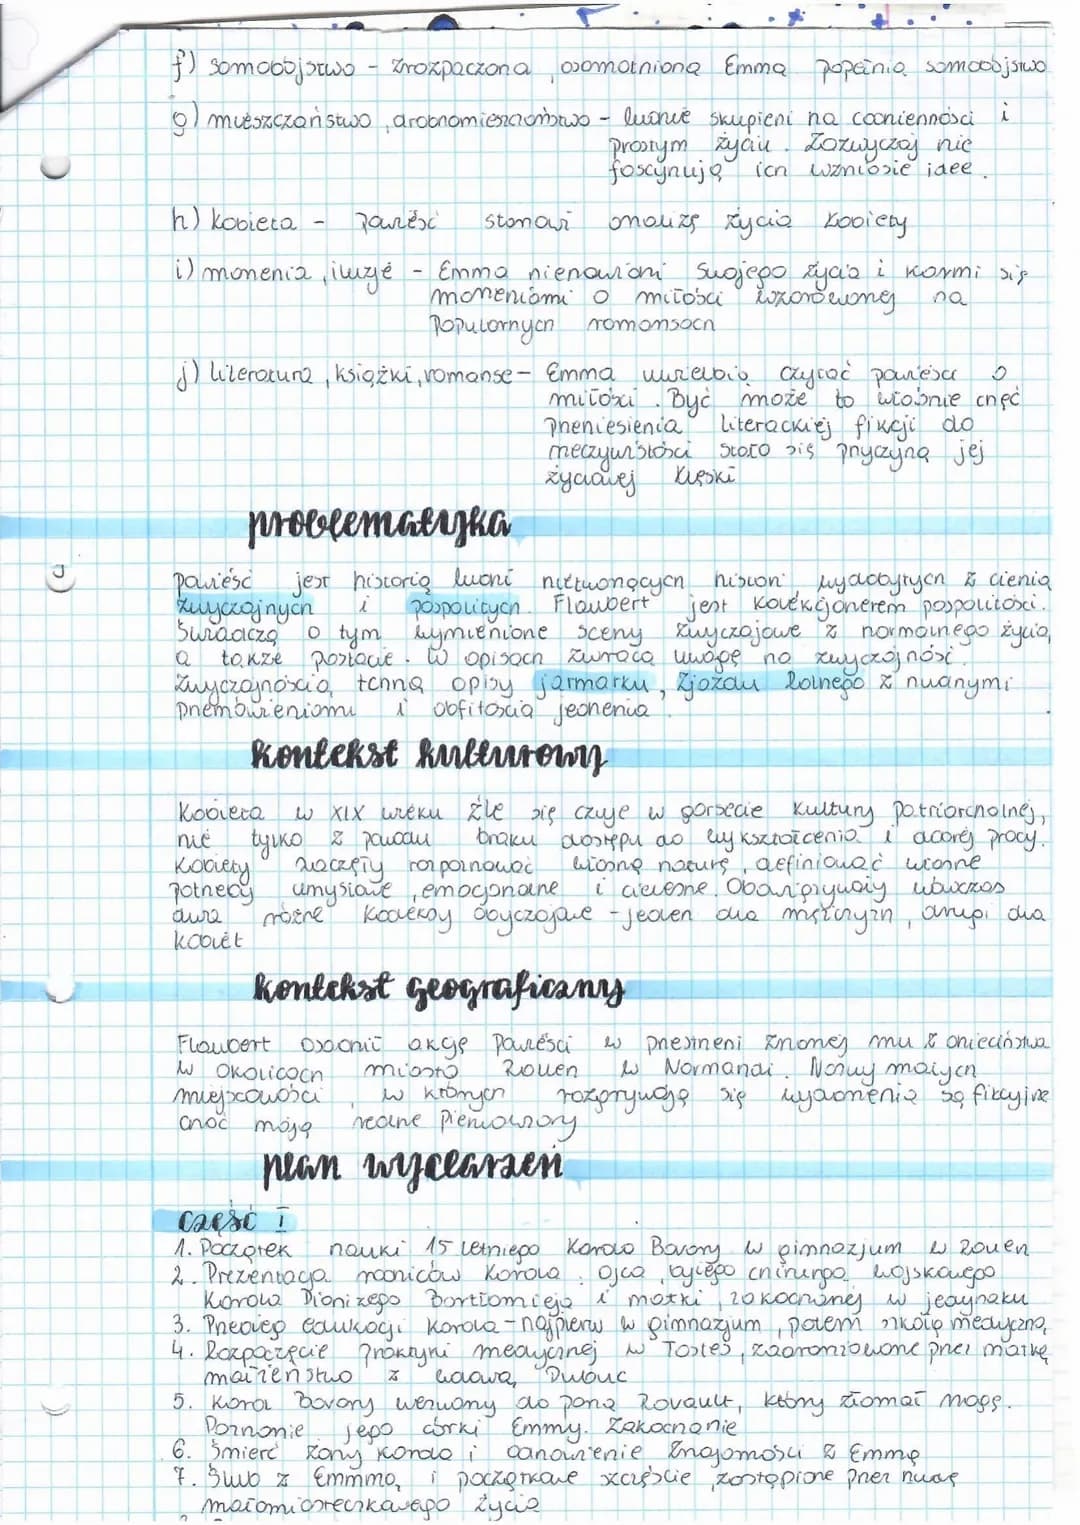 f) samobójstwo - zrozpaczona, osamotniona Emma popełnia samobójstwo
g) mieszczaństwo, drobnomieszczaństwo - ludzie skupieni na codzienności i
prostym życiu. Zazwyczaj nie
fascynują ich wzniosłe idee.
h) kobieta - powieść stanowi analizę życia kobiety
i) marzenia, iluzje - Emma nienawidzi swojego życia i karmi się
marzeniami o miłości wzorowanej na
popularnych romansach
j) literatura, książki, romanse - Emma uwielbia czytać powieści o
miłości. Być może to właśnie chęć
przeniesienia literackiej fikcji do
rzeczywistości stało się przyczyną jej
życiowej klęski
problematyka
powieść jest historią ludzi nietworzących historii wydobytych z cienia
zwyczajnych i pospolitych. Flaubert jest kolekcjonerem pospolitości.
Świadczą o tym wymienione sceny zwyczajowe z normalnego życia,
a także postacie. W opisach zwraca uwagę na zwyczajność.
Zwyczajnością tchną opisy jarmarku, zjazdu rolnego z nudnymi
przemówieniami i obfitością jedzenia.
kontekst kulturowy
Kobieta w XIX wieku źle się czuje w gorsecie kultury patriarchalnej,
nie tylko z powodu braku dostępu do wykształcenia i dobrej pracy.
Kobiety zaczęły rozpoznawać własną naturę, definiować własne
potrzeby umysłowe, emocjonalne i cielesne. Obowiązywały wówczas
dwa różne kodeksy obyczajowe - jeden dla mężczyzn, drugi dla
kobiet
kontekst geograficzny
Flaubert osadził akcję powieści w przestrzeni znanej mu z dzieciństwa
w okolicach miasta Rouen w Normandii. Nazwy małych
miejscowości, w których rozgrywają się wydarzenia są fikcyjne
choć mają realne pierwowzory
plan wydarzeń
część I
1. Początek nauki 15 letniego Karola Bovary w gimnazjum w Rouen
2. Prezentacja rodziców Karola. Ojca, byłego chirurga wojskowego
Karola Dionizego Bartłomieja i matki, zakochanej w jedynaku
3. Przebieg edukacji Karola - najpierw w gimnazjum, potem szkołą medyczną,
4. Rozpoczęcie praktyki medycznej w Tostes, zaaranżowane przez matkę
małżeństwo z wdową Dubuc
5. Karol Bovary wezwany do pana Rouault, który złamał nogę.
Poznanie jego córki Emmy. Zakochanie
6. Śmierć żony Karola i odnowienie znajomości z Emmą
7. Ślub z Emmmą, i początkowe szczęście zastąpione przez nudę
małomiasteczkowego życia